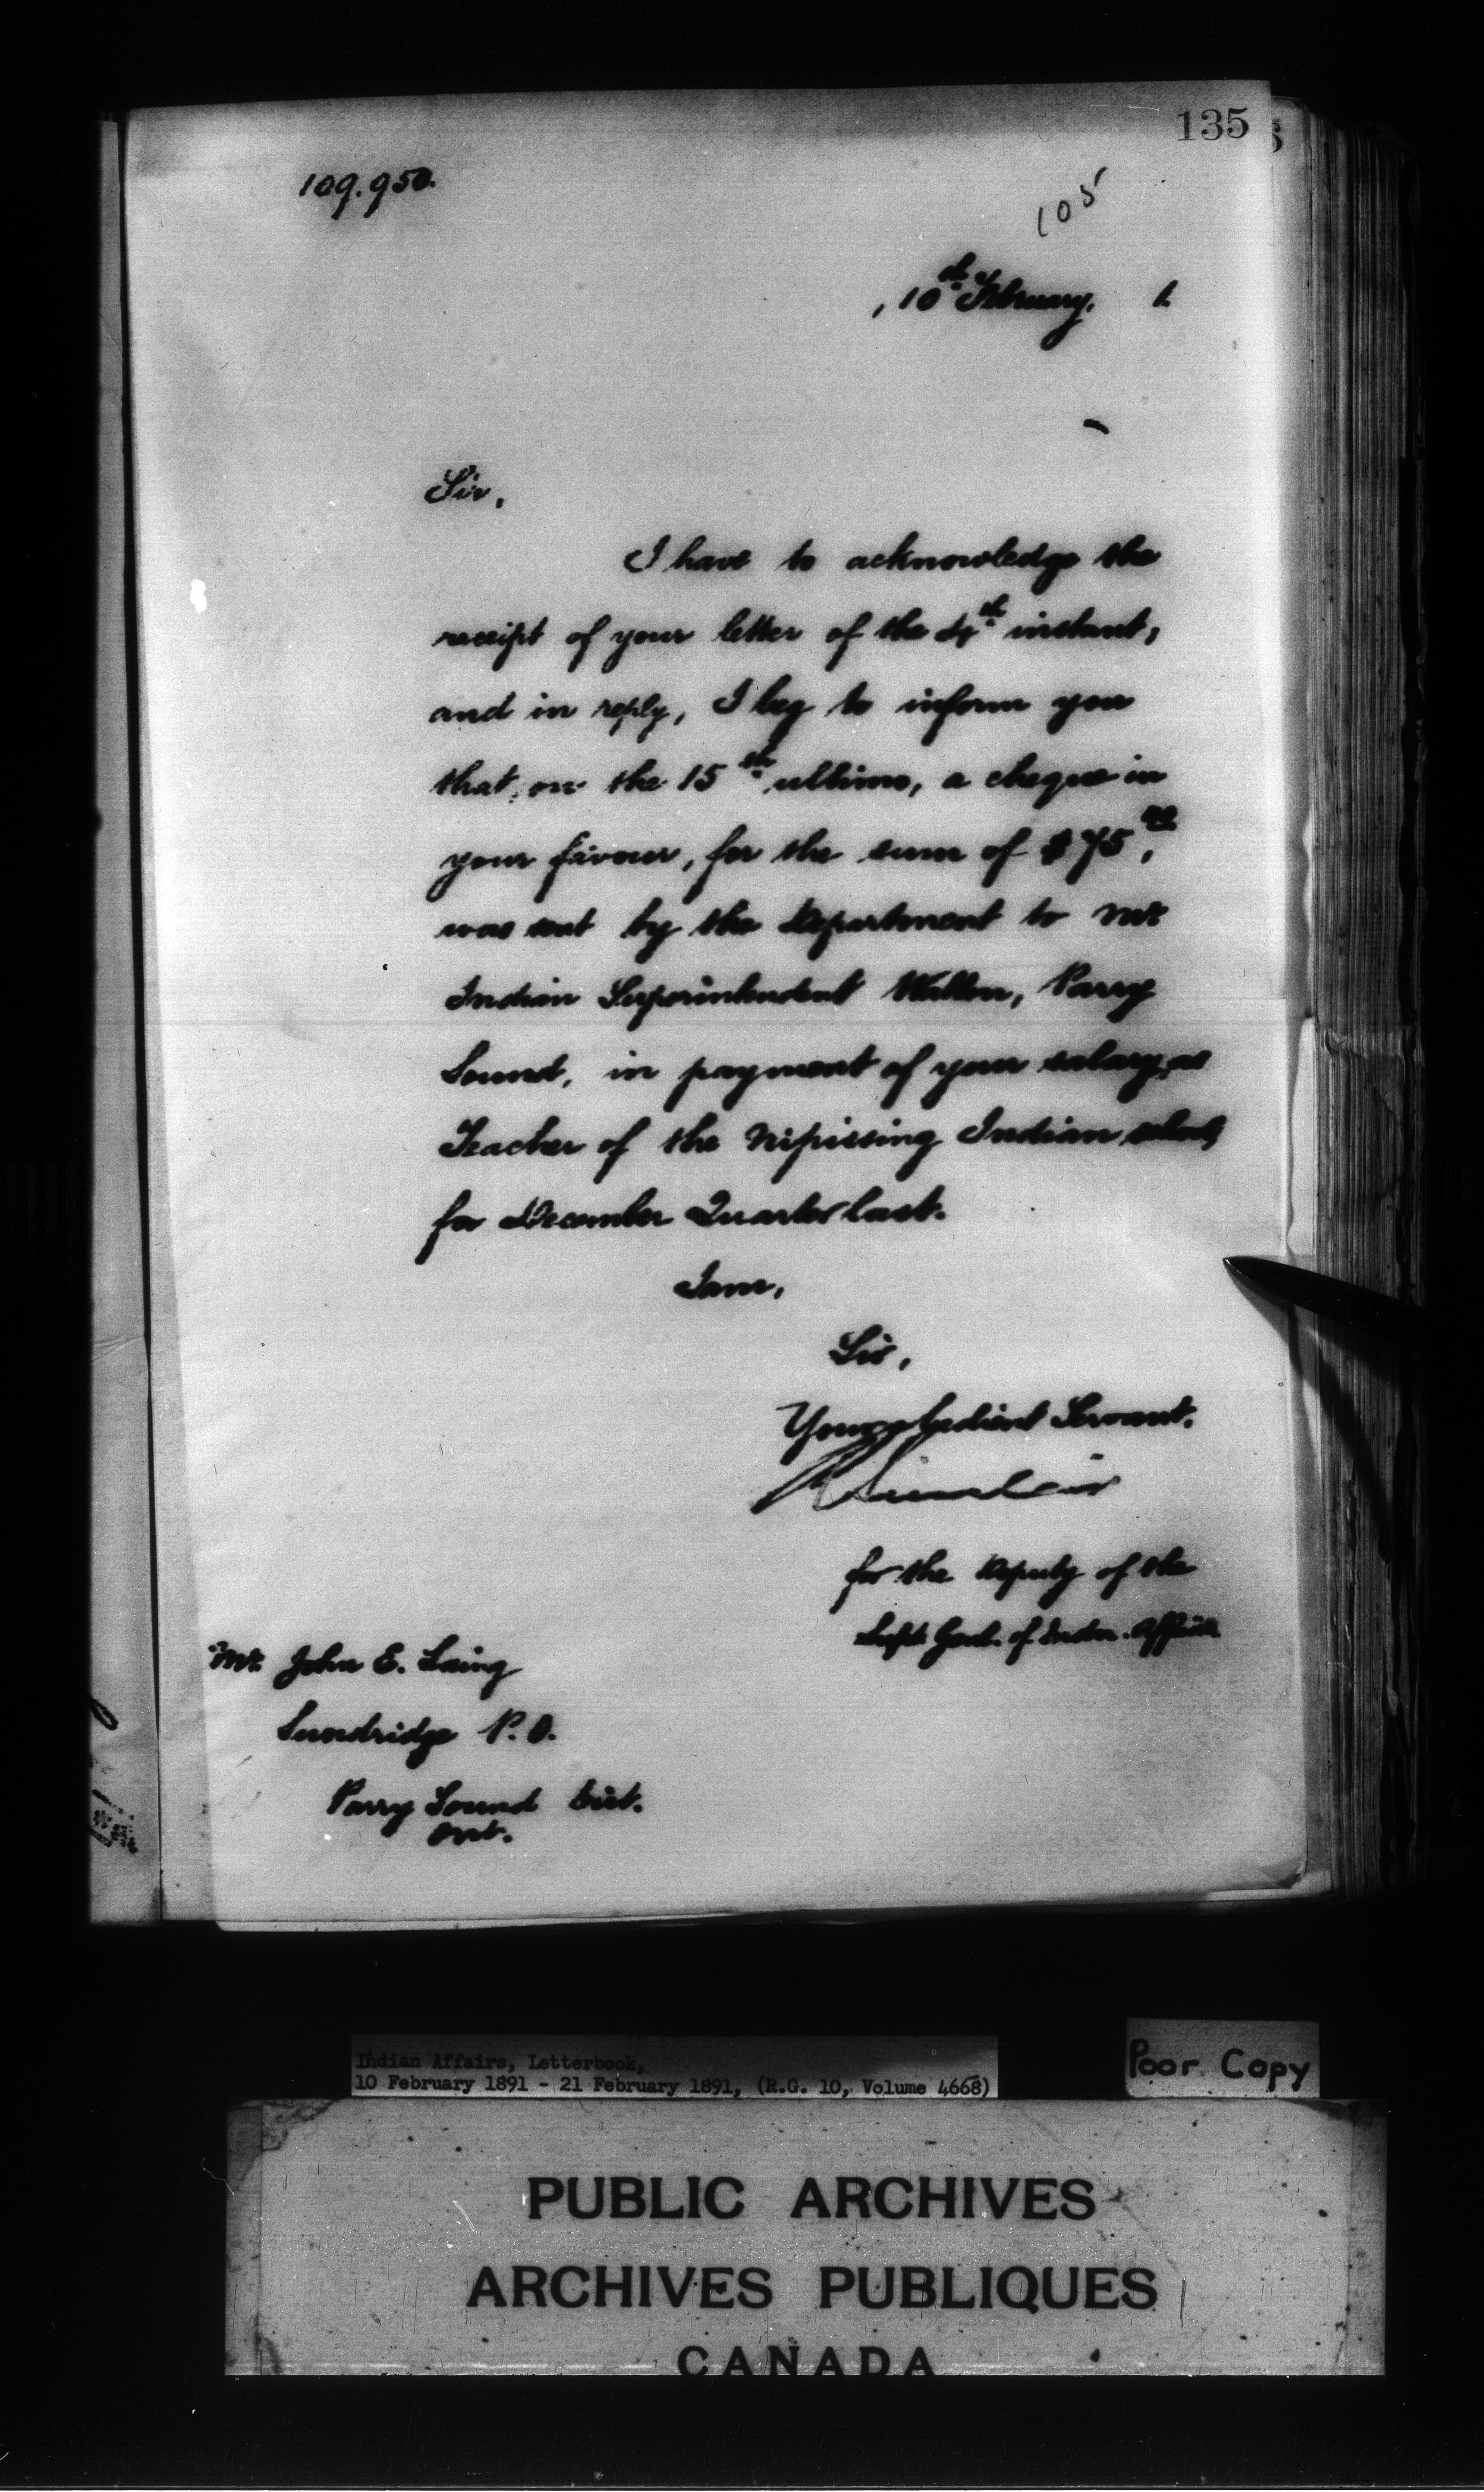 135
109.950.
105
, 10th February, 1.
Sir,
I have to acknowledge the
receipt of your letter of the 4th instant,
and in reply, I beg to inform you
that, on the 15th ultimo, a cheque in
your favour, for the sum of $75,00
was sent by the Department to Mr.
Indian Superintendent Walton, Parry
Sound, in payment of your salary, as
Teacher of the Nipissing Indian school,
for December Quarter last.
I am,
Sir,
Your obedient Servant.
R Sinclair
for the Deputy of the
Supt. Genl. of Indn. Affairs
Mr. John E. Laing
Sundridge P.O.
Parry Sound Dist.
Ont.
Indian Affairs, Letterbook,
10 February 1891 - 21 February 1891, (R.G. 10, Volume 4668)
Poor Copy
PUBLIC ARCHIVES
ARCHIVES PUBLIQUES
CANADA